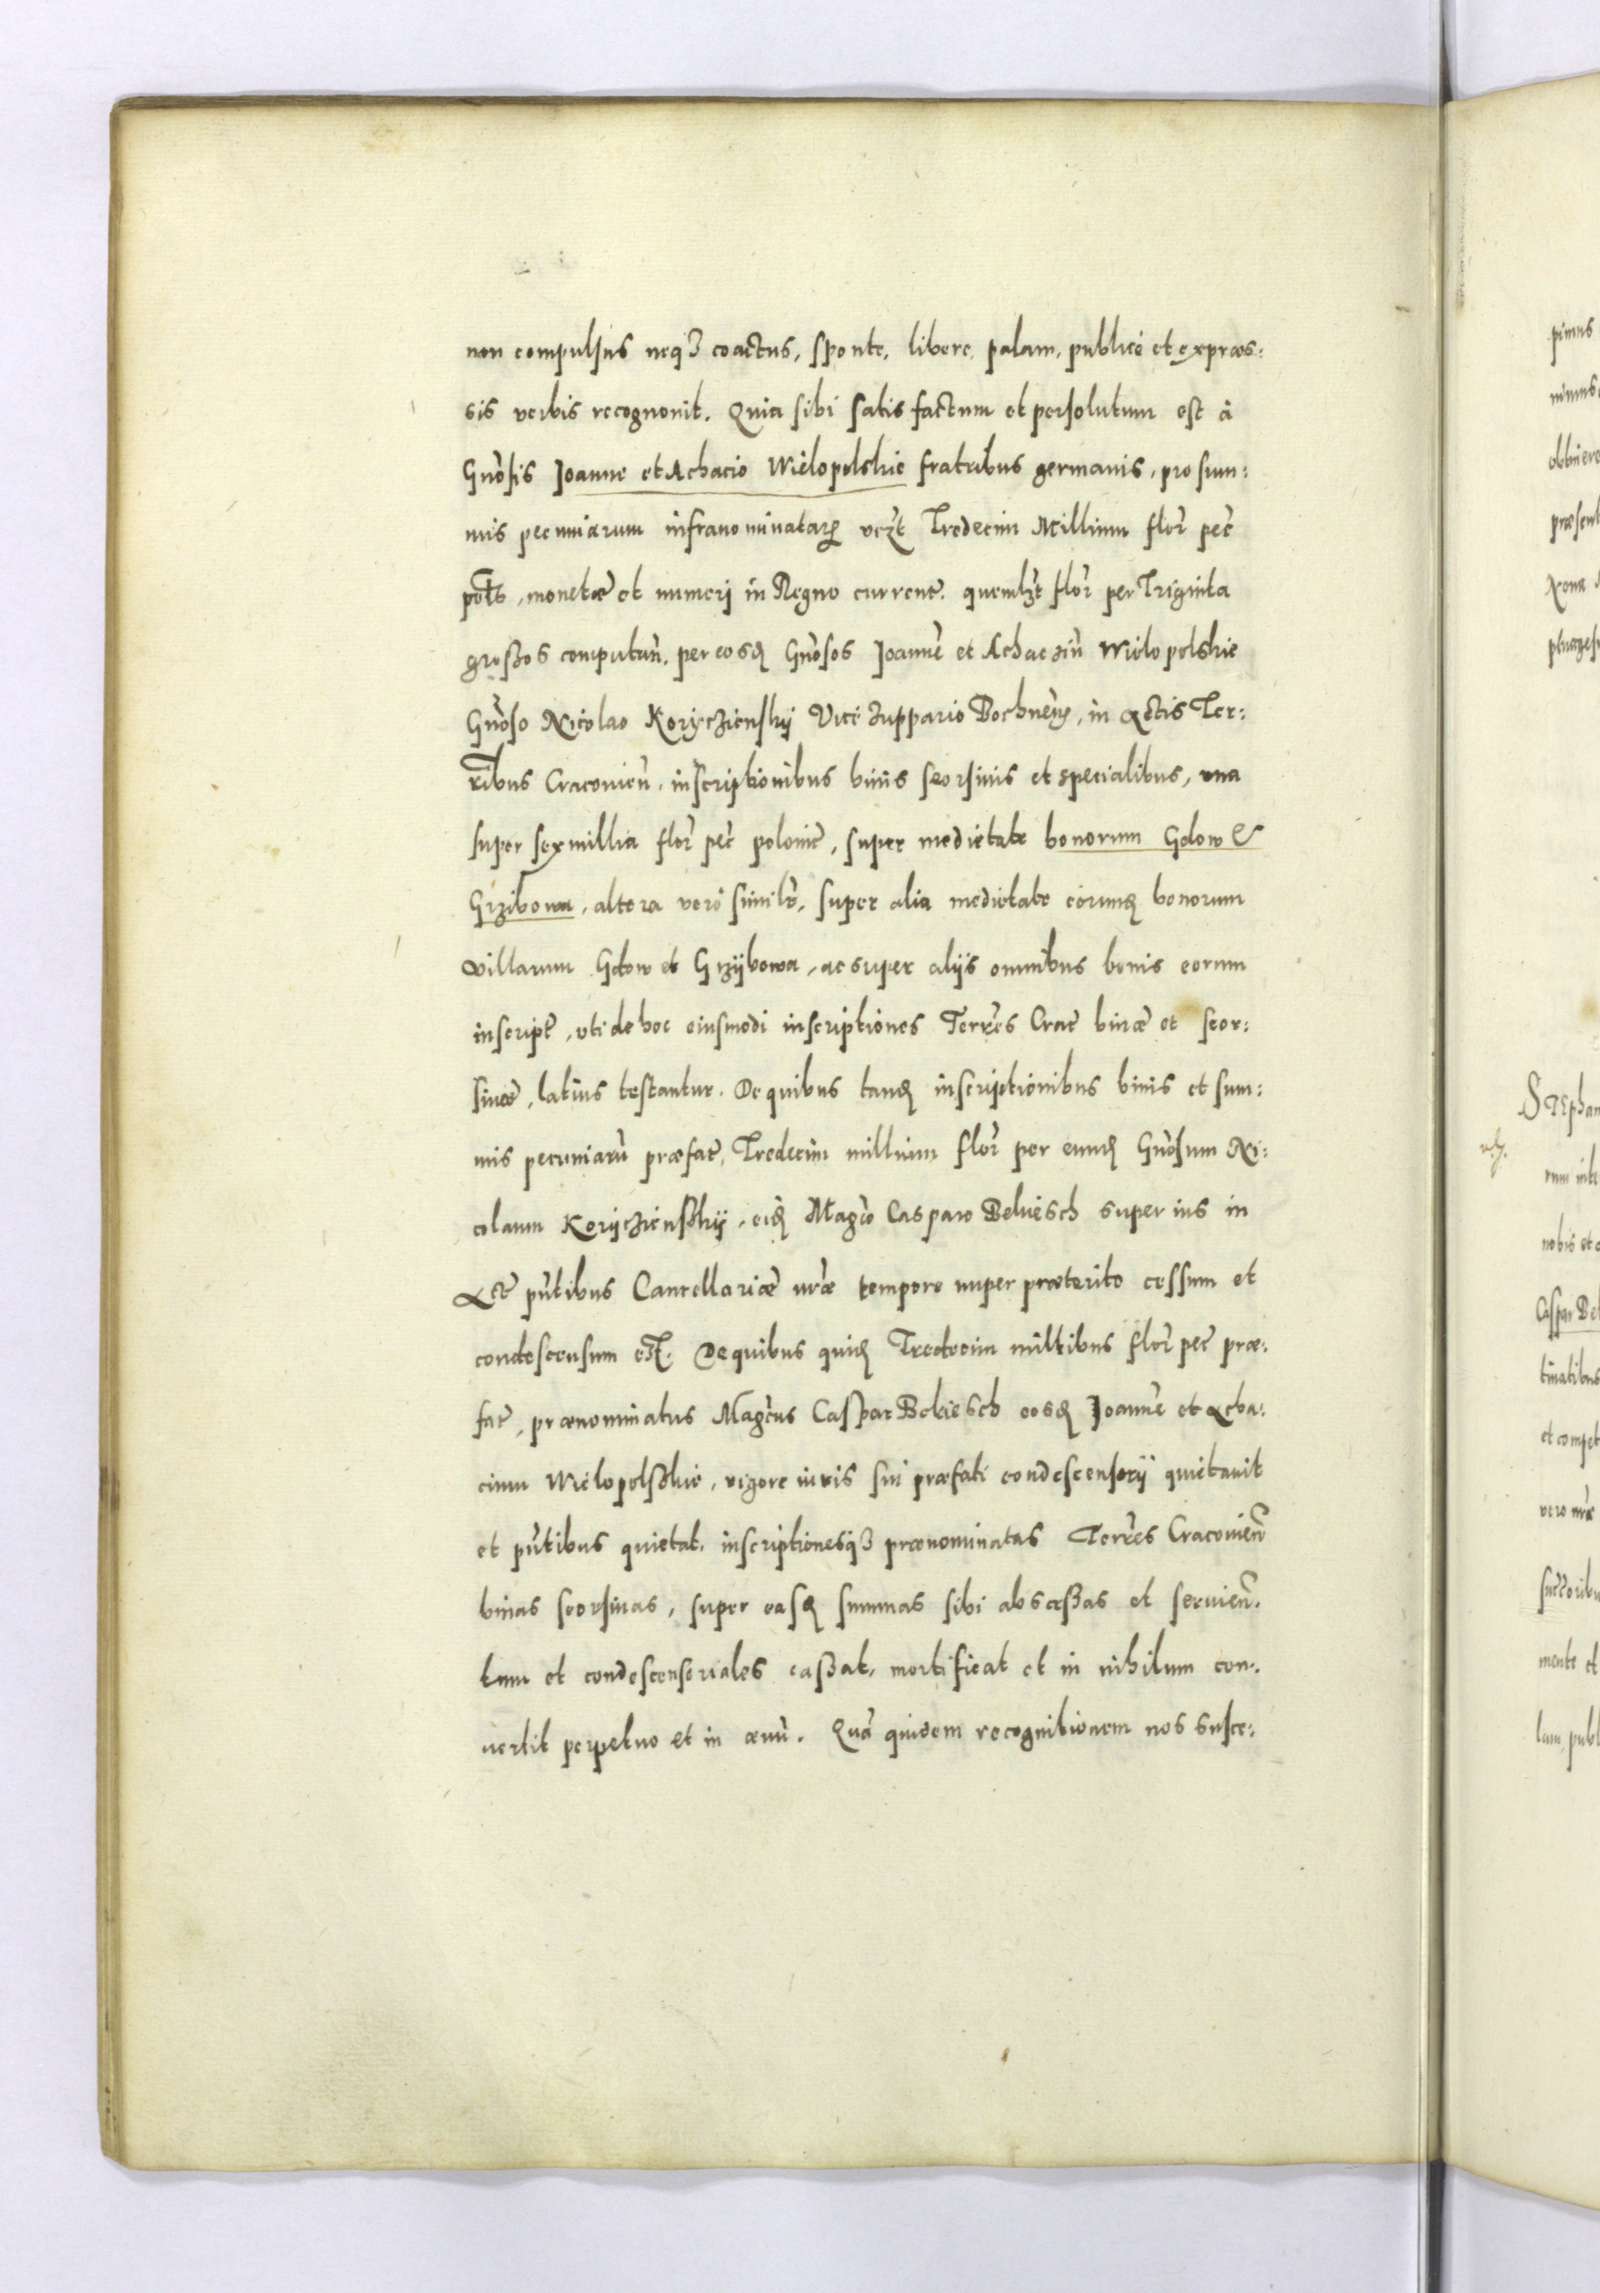 non compulsus neqʒ coactus, sponte, libere, palam, publice et expræs:
sis verbis recognovit. Quia sibi satis factum et persolutum est à
Gñosis Joanne et Achacio Wielopolskie fratribus germanis, pro sum:
mis pecuniarum infranominatarꝝ vczt Tredecim Millium flor̃ pec̃
polt, monetæ et numeri in Regno curreñ. quemlzt flor̃ per Triginta
großos computañ, per eosđ Gñosos Joannẽ et Achacziũ Wielopolskie
Gñoso Nicolao Koryczienskij Vice zuppario Bochneñ, in Actis Ter:
ribus Cracovieñ, inscriptionibus binis seorsinis et specialibus, una
super sex millia flor̃ pec̃ polonic̃, super medietate bonorum Gdow &
Grzibowa, altera vero similr̃, super alia medietate eorumđ bonorum
villarum Gdow et Grzybowa, ac super alijs omnibus bonis eorum
inscript̃, uti de hoc eiusmodi inscriptiones Terres̃ Crac̃ binæ et seor:
sinæ, latius testantur. De quibus tanđ inscriptionibus binis et sum:
mis pecuniarũ præfat̃, Tredecim millium flor̃ per eunđ Gñosum Ni:
colaum Koryczienßkij, eiđ Magco Casparo Bekiesch superius in
Act̃ pñtibus Cancellariæ nræ tempore nuper præterito cessum et
condescensum est. De quibus quiđ Tredecim millibus flor̃ pec̃ præ:
fat̃, prænominatus Magcus Caspar Bekiesch eosđ Joannẽ et Acha:
cium Wielopolßkie, vigore iuris sui præfati condescensorij quietavit
et pñtibus quietat, inscriptionesqʒ prænominatas Terres̃ Cracovieñ
binas seorsinas, super easđ summas sibi abscæßas et servieñ.
tum et condescensoriales caßat, mortificat et in nihilum con:
vertit perpetuo et in ævũ. Quã quidem recognitionem nos susce:
pimus
obtinere
præsent
Stephan
rum inte
nobis et
Caspar Bek
tinatibus
et compet
vero nræ
mente et
lam, publ